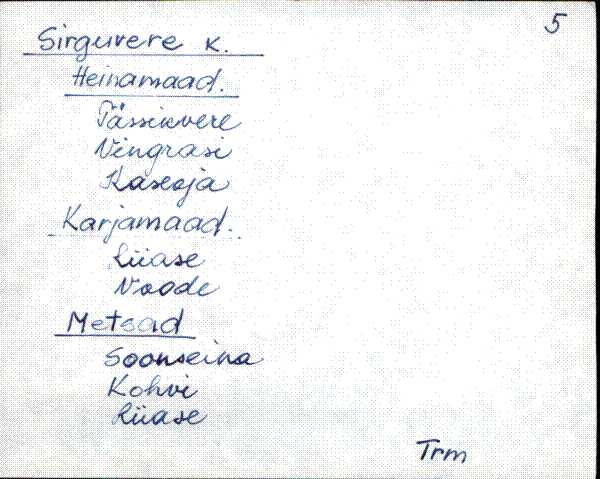 5
Sirguvere k.
Heinamaad.
Tässikvere
Vingrasi
Kaseoja
Karjamaad.
Liiase
Voode
Metsad
Soonseina
Kohvi
Liiase
Trm